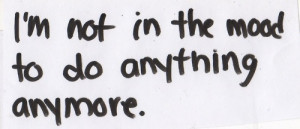 I'm not in the mood
to do anything
anymore.